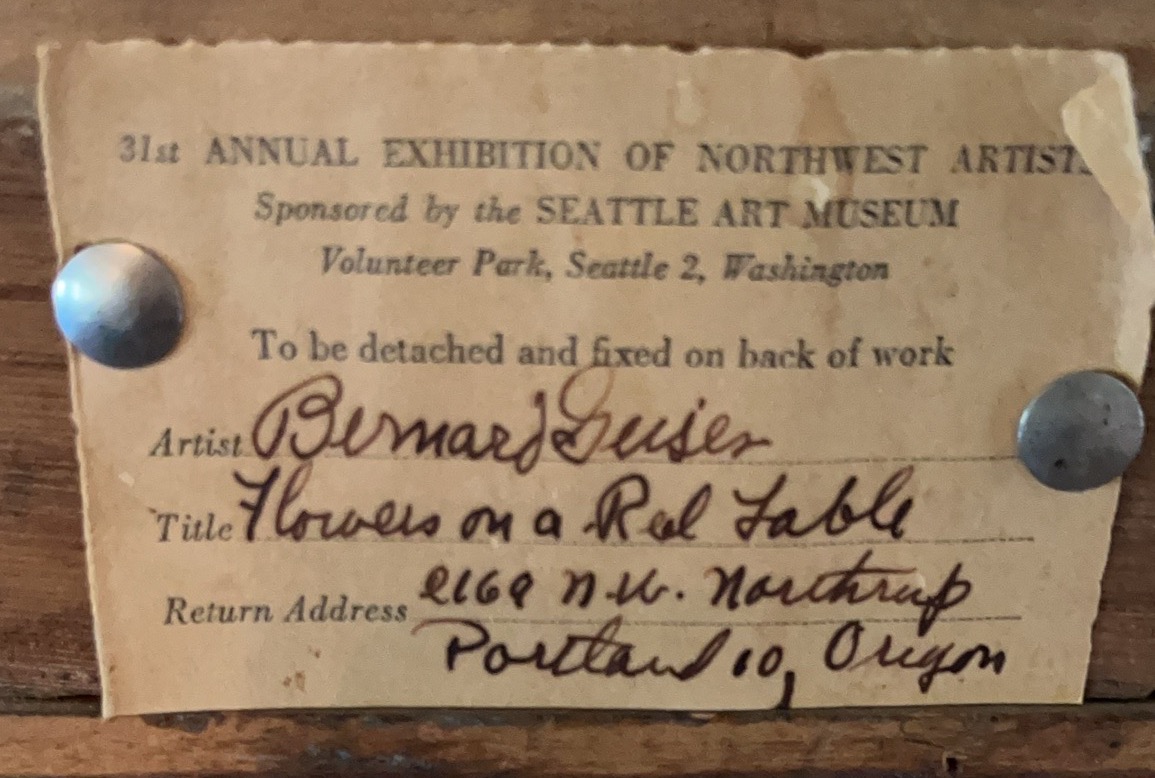 31st ANNUAL EXHIBITION OF NORTHWEST ARTISTS
Sponsored by the SEATTLE ART MUSEUM
Volunteer Park, Seattle 2, Washington
To be detached and fixed on back of work
Artist Bernard Geiser
Title Flowers on a Red Table
Return Address 2169 N.W. Northrup
Portland 10, Oregon